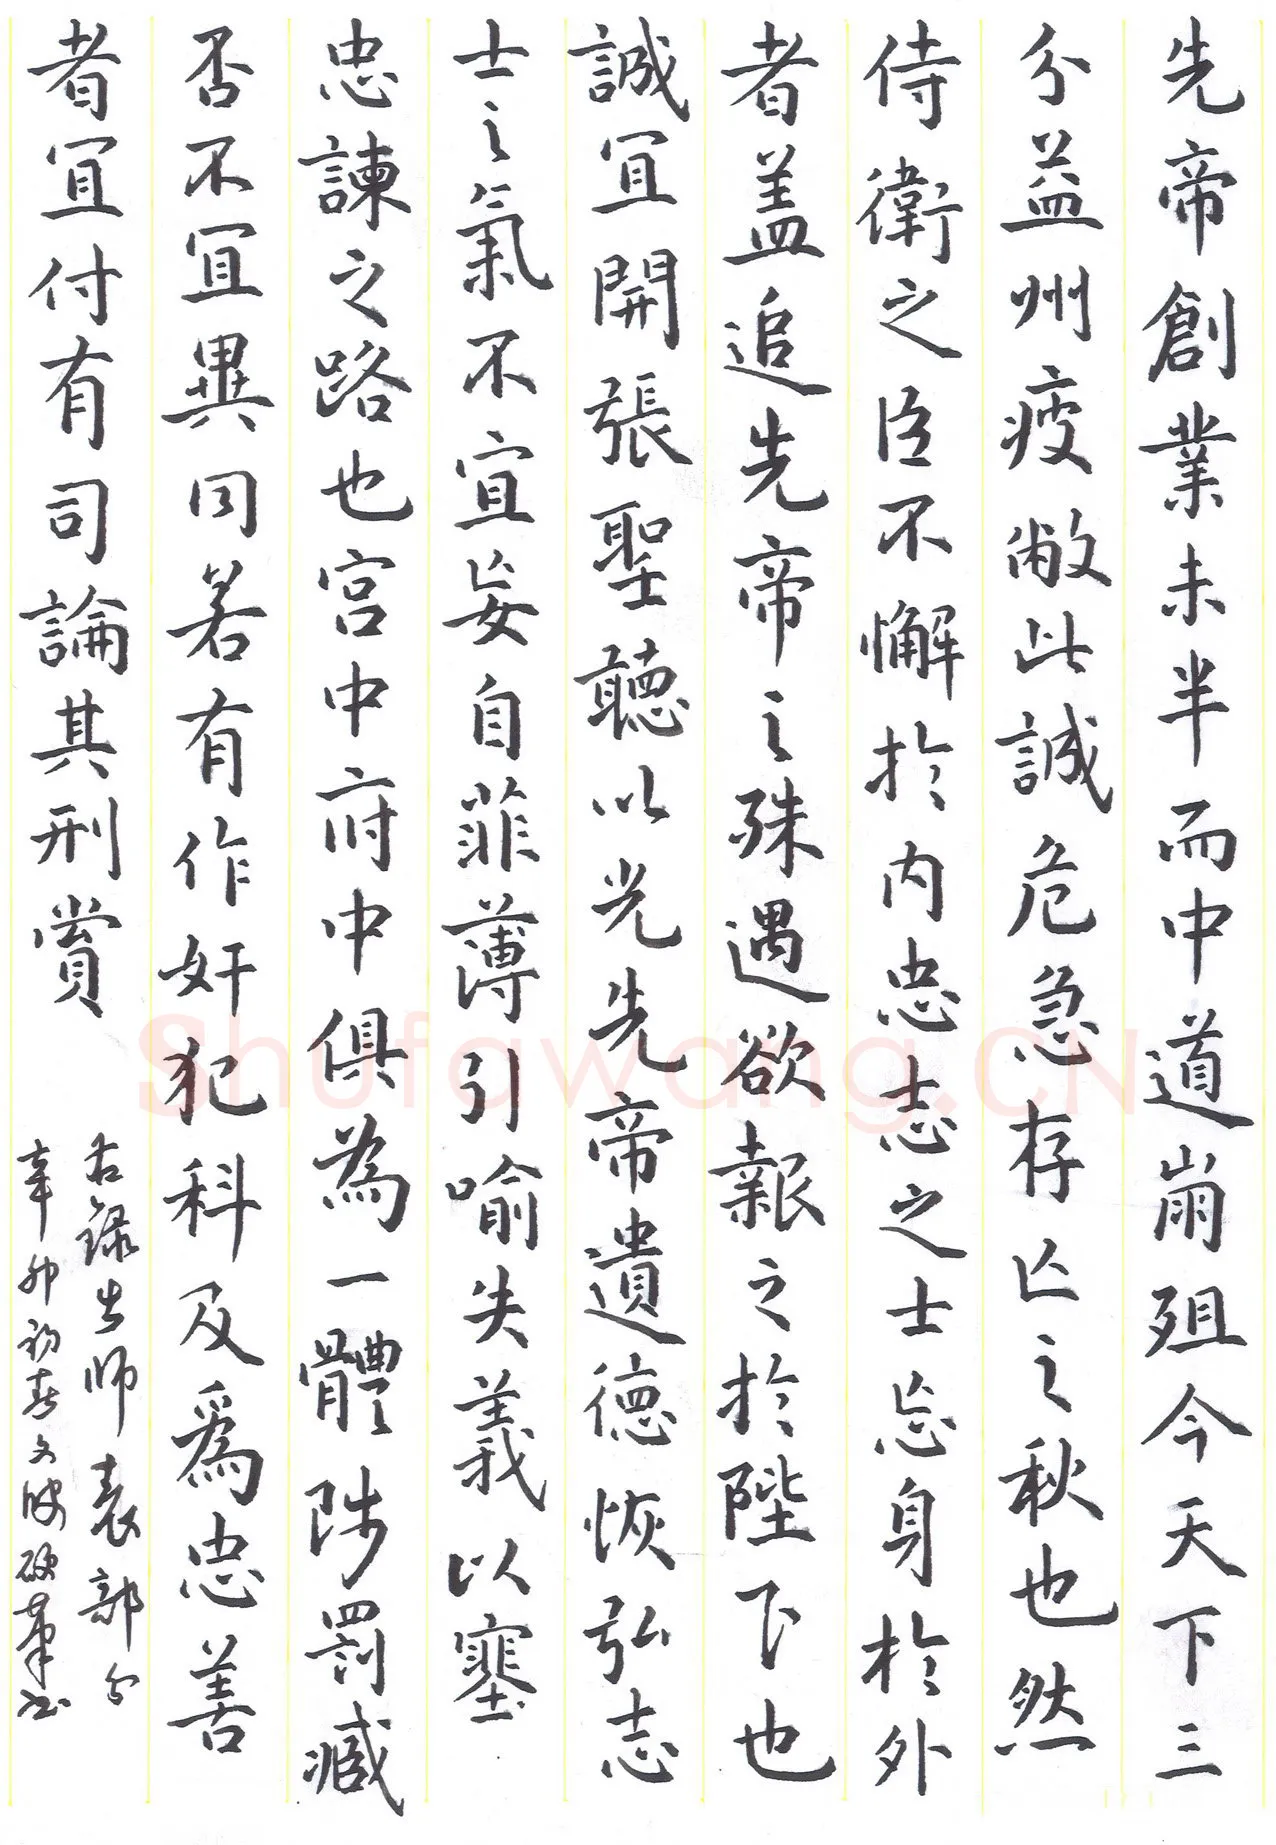 先帝創業未半而中道崩殂今天下三
分益州疲敝此誠危急存亡之秋也然
侍衛之臣不懈於內忠志之士忘身於外
者蓋追先帝之殊遇欲報之於陛下也
誠宜開張聖聽以光先帝遺德恢弘志
士之氣不宜妄自菲薄引喻失義以塞
忠諫之路也宮中府中俱為一體陟罰臧
否不宜異同若有作奸犯科及爲忠善
者宜付有司論其刑賞
右錄出師表部分
辛卯初春文波硬筆書
Shufawang.CN